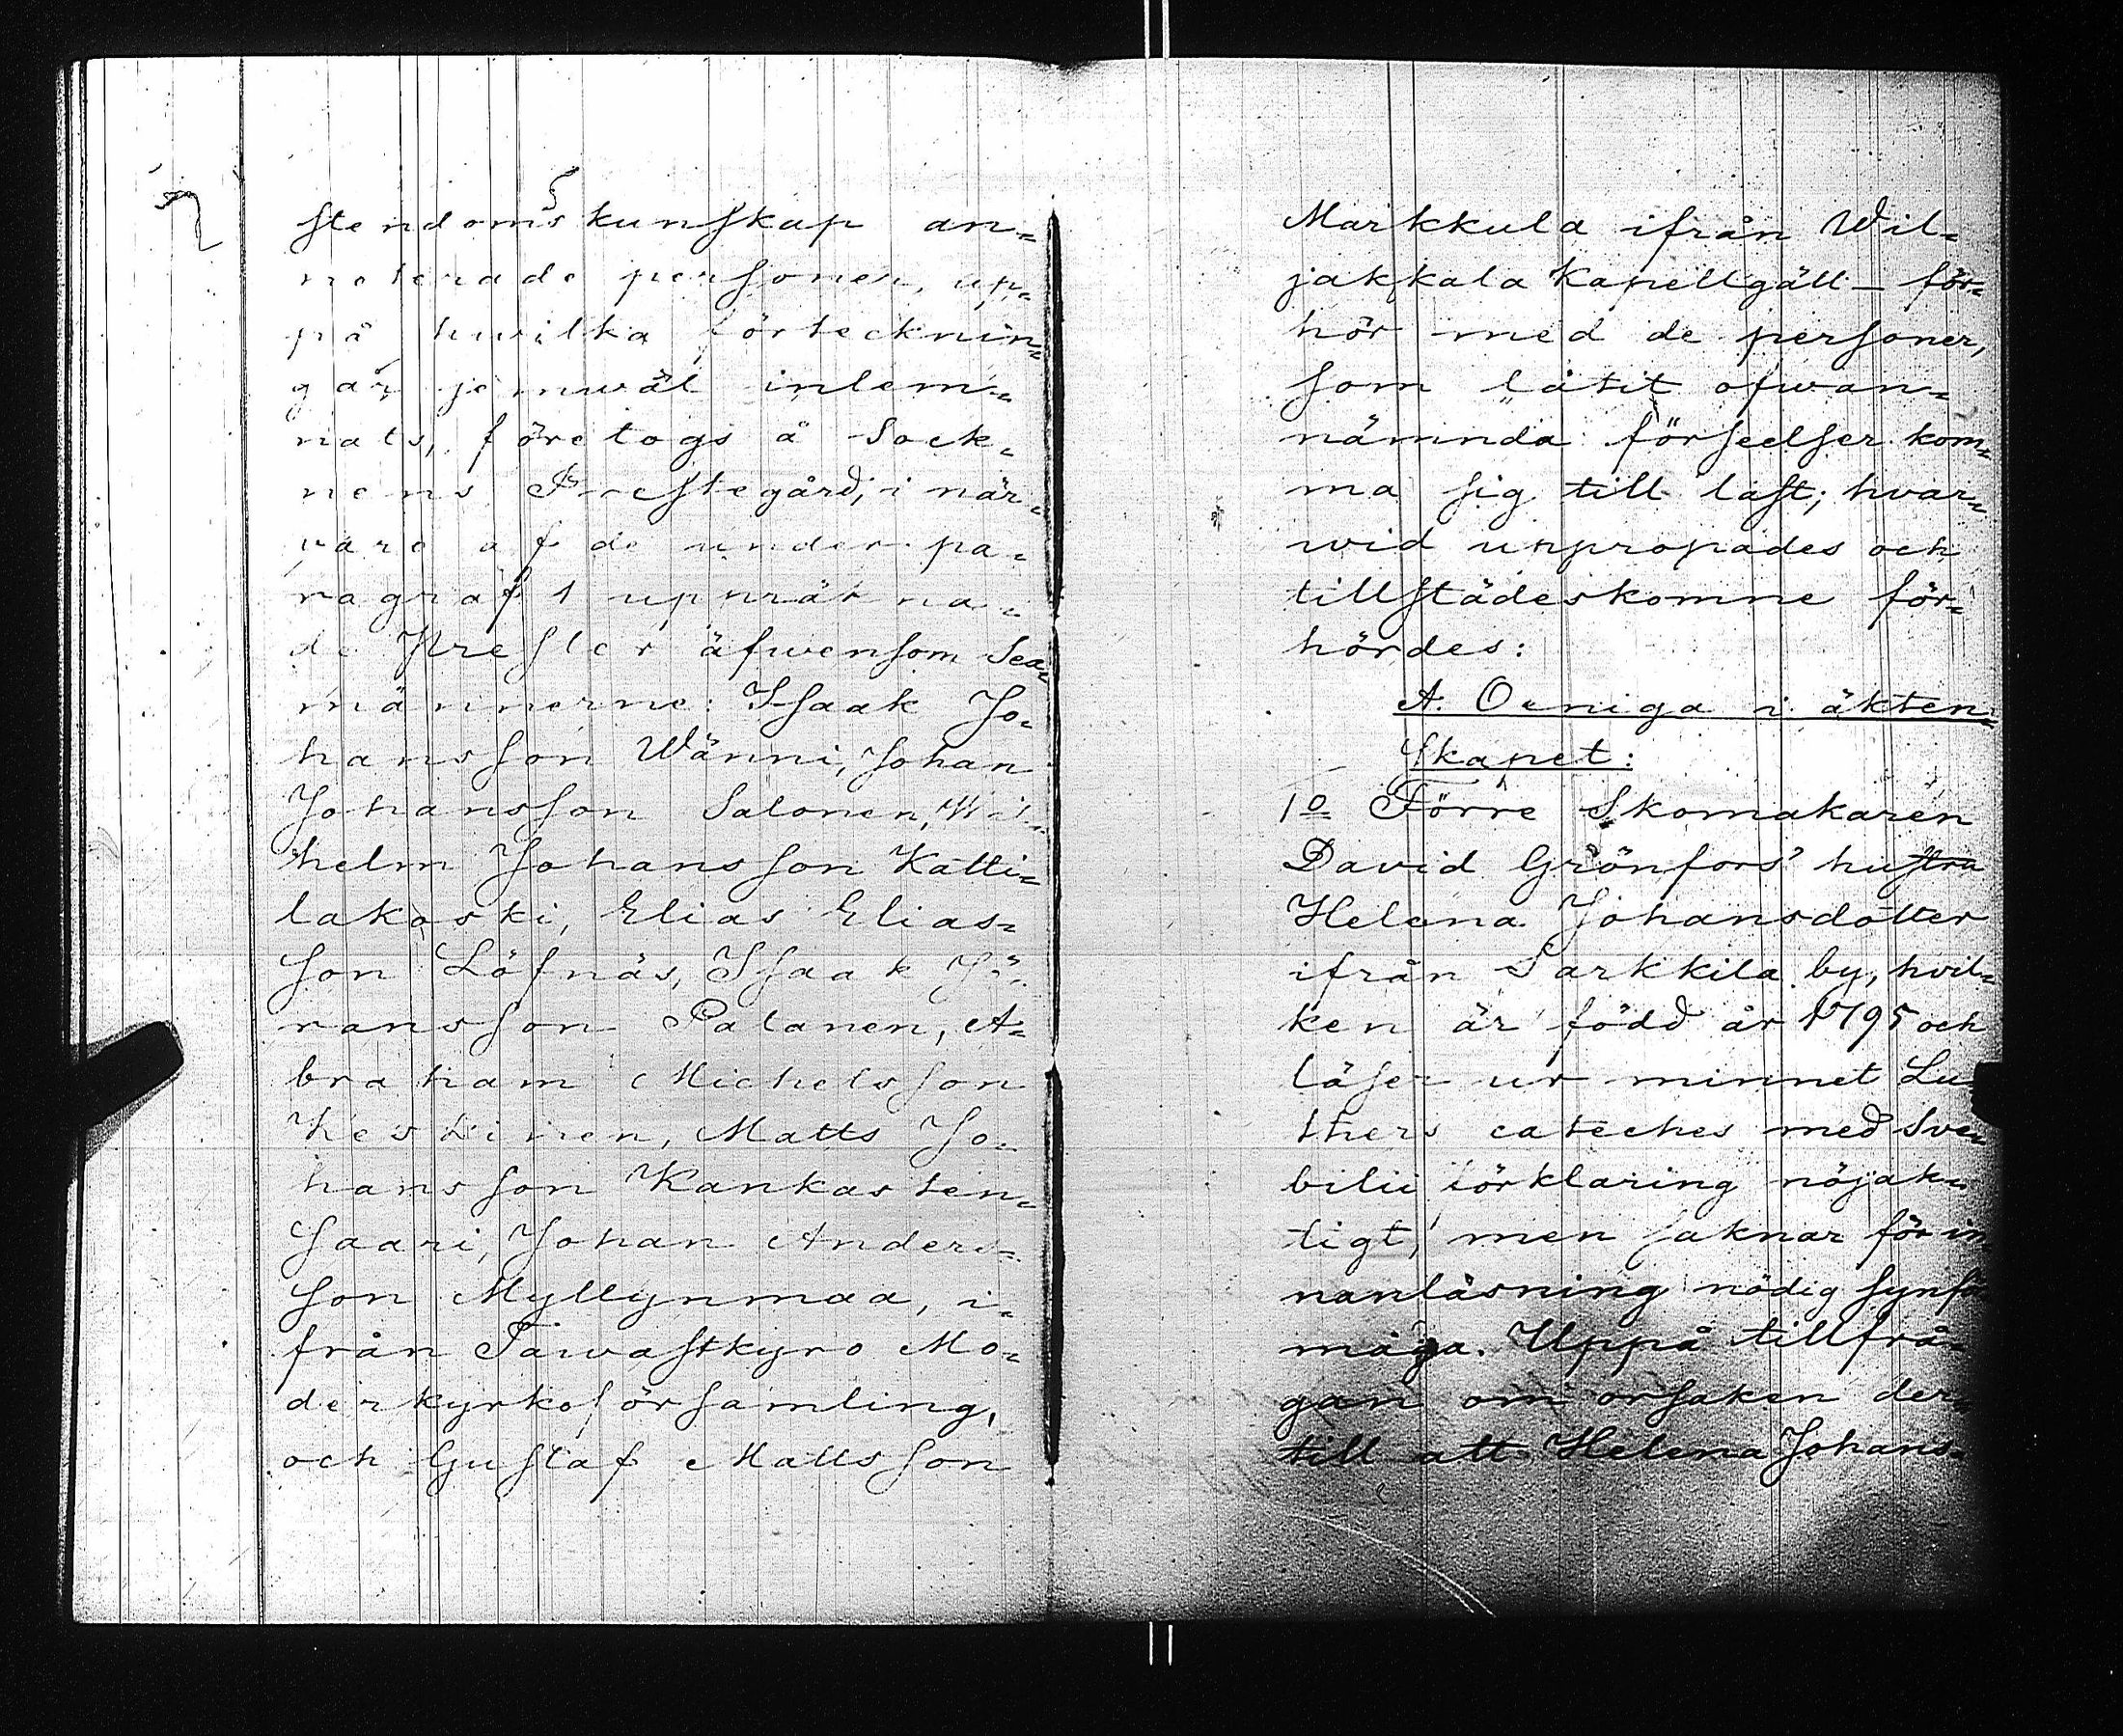 stendomskunskap an=
noterade personer, up=
på hwilka förtecknin=
gar jemwäl inlem=
nats, företogs å Sock=
nens Prestegård, i när=
varo af de under pa=
ragraf 1 upräkna=
de Prester äfwensom Sex=
männerne: Isaak Jo=
hansson Wänni, Johan
Johansson Salonen, Wil=
helm Johansson Kätti=
lakoski, Elias Elias=
son Löfnäs, Isaak Jö=
ransson Palanen, A=
braham Michelsson
Keskinen, Matts Jo=
hansson Kankasten=
Saari, Johan Anders=
son Myllynmaa, i=
från Tawastkyro Mo=
derkyrkoförsamling,
och Gustaf Mattsson
Markkula ifrån Wil=
jakkala Kapellgäll — för=
hör med de personer,
som låtit ofwan=
nämnda förseelser kom=
ma sig till last; hvar=
wid uppropades och
tillstädeskomne för=
hördes:
A. Oeniga i äkten=
skapet:
1o Förre Skomakaren
David Grönfors' hustru
Helena Johansdotter
ifrån Sarkkila by, hvil=
ken är född år 1795 och
läser ur minnet Lu=
thers cateches med Sve=
bilii förklaring nöjak=
tigt, men saknar för in
nanläsning nödig synfö
måga. Uppå tillfrå=
gan om orsaken der=
till att Helena Johans=